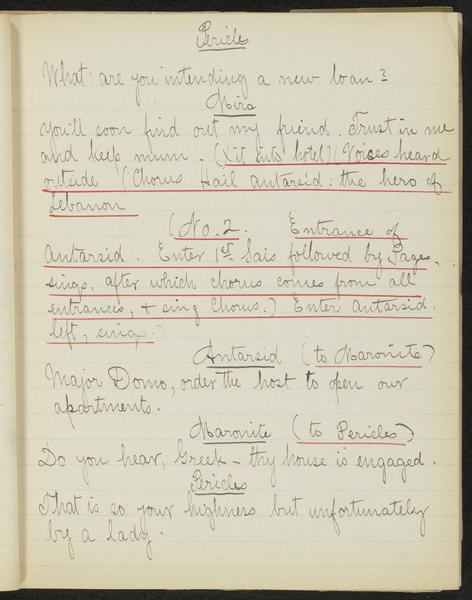 Pericles
What: are you intending a new loan?
Mira
You'll soon find out my friend. Trust in me
and keep mum. (Xit into hotel) / Voices heard
outside (Chorus Hail Antarsid: the hero of
Lebanon
(No. 2. Entrance of
Antarsid. Enter 1st Sais followed by Pages,
sings, after which chorus comes from all
entrances, + sing Chorus.) Enter Antarsid,
left, sings.)
Antarsid (to Maronite)
Major Domo, order the host to open our
apartments.
Maronite (to Pericles)
Do you hear, Greek – thy house is engaged.
Pericles
That is so your highness but unfortunately
by a lady.